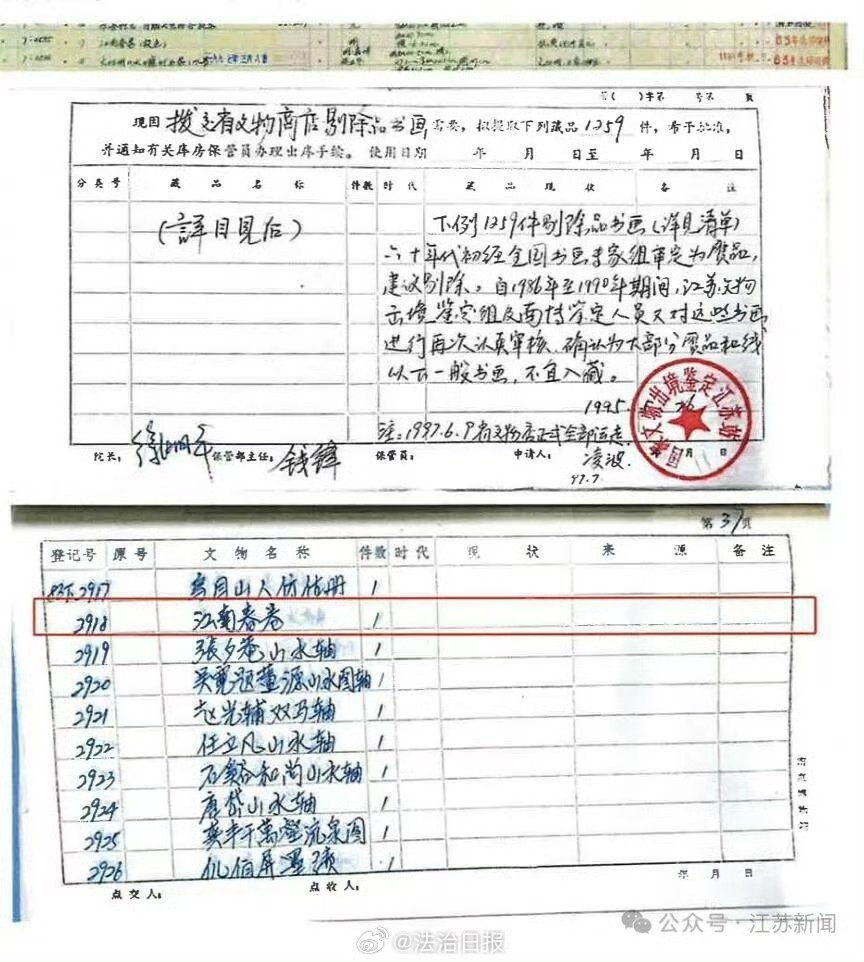 江南春卷
63年
一九六七年三月八日
63年
第( )字第 号第 页
现因拨交省文物商店剔除品书画需要,拟提取下列藏品1259件,希予批准,
并通知有关库房保管员办理出库手续。使用日期 年 月 日至 年 月 日
分类号 藏品名称 件数 时代 藏品现状 备注
(詳目見后)
下例1259件剔除品书画(详见清单)
六十年代初经全国书画专家组审定为赝品,
建议剔除。自1986年至1990年期间,江苏文物
出境鉴定组及南博鉴定人员又对这些书画
进行再次认真审核,确认为大部分赝品和线
以下一般书画,不宜入藏。
1995. 26
注:1997.6.9省文物店正式全部运走
国家文物出境鉴定江苏站
月 日
院长: 徐湖平 保管部主任: 钱锋 保管员: 申请人: 凌波
97.7
第37页
登记号 原号 文物名称 件数 时代 现状 来源 备注
2917 1
2918 江南春卷 1
2919 張夕菴山水轴 1
2920 吴宽题董源山水图轴 1
2921 赵光辅双马轴 1
2922 任立凡山水轴 1
2923 石谿和尚山水轴 1
2924 唐岱山水轴 1
2925 龚半千萬壑流泉图 1
2926 1
点交人: 点收人: 年 月 日
公众号·江苏新闻
@法治日报